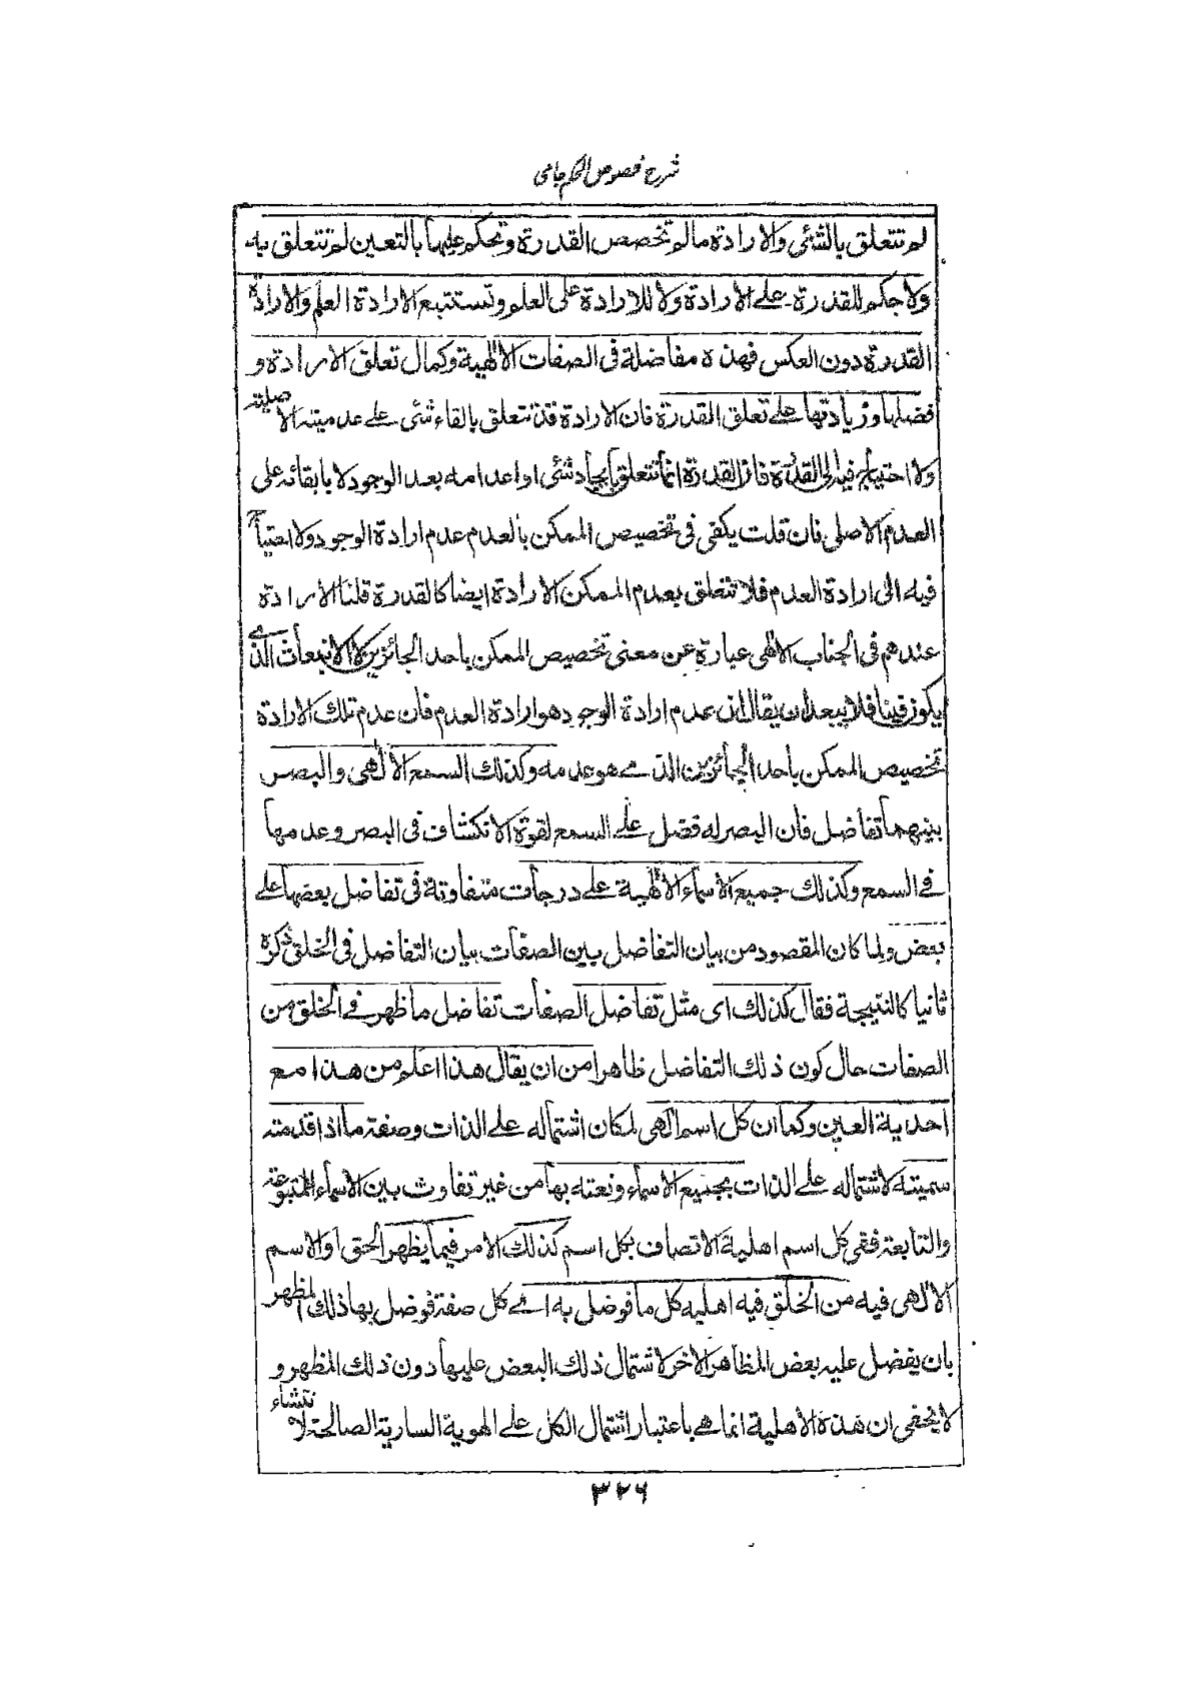 شرح فصوص الحكم جامى
لم تتعلق بالشئى والارادة ما لم تخصص القدرة وتحكم عليها بالتعين لم تتعلق به
ولا حكم للقدرة على الارادة ولا للارادة على العلم وتستتبع الارادة العلم والارادة
القدرة دون العكس فهذه مفاضلة فى الصفات الالهية وكمال تعلق الارادة و
فضلها وزيادتها على تعلق القدرة فان الارادة قد تتعلق بالقاء شئى على عدميته الاصلية
ولا احتياج فيه الى القدرة فان القدرة انما تتعلق بايجاد شئى او اعدامه بعد الوجود لا بابقائه على
العدم الاصلى فان قلت يكفى فى تخصيص الممكن بالعدم عدم ارادة الوجود ولا احتياج
فيه الى ارادة العدم فلا تتعلق بعدم الممكن الارادة ايضا كالقدرة قلنا الارادة
عندهم فى الجناب الالهى عبارة عن معنى تخصيص الممكن باحد الجائزين لا الانبعاث الذى
يكون فينا فلا يبعد ان يقال ان عدم ارادة الوجود هو ارادة العدم فان عدم تلك الارادة
تخصيص الممكن باحد الجائزين الذى هو عدمه وكذلك السمع الالهى والبصر
بينهما تفاضل فان البصر له فضل على السمع لقوة الانكشاف فى البصر وعدمها
فى السمع وكذلك جميع الاسماء الالهية على درجات متفاوتة فى تفاضل بعضها على
بعض ولما كان المقصود من بيان التفاضل بين الصفات بيان التفاضل فى الخلق ذكره
ثانيا كالنتيجة فقال كذلك اى مثل تفاضل الصفات تفاضل ما ظهر فى الخلق من
الصفات حال كون ذلك التفاضل ظاهرا من ان يقال هذا اعلم من هذا مع
احدية العين وكما ان كل اسم الهى لمكان اشتماله على الذات وصفة ما اذا قدمته
سميته لاشتماله على الذات بجميع الاسماء ونعته بها من غير تفاوت بين الاسماء المتبوعة
والتابعة ففى كل اسم اهلية الاتصاف بكل اسم كذلك الامر فيما يظهر الحق او الاسم
الالهى فيه من الخلق فيه اهلية كل ما فوضل به اى كل صفة فوضل بها ذلك المظهر
بان يفضل عليه بعض المظاهر الاخر لاشتمال ذلك البعض عليها دون ذلك المظهر و
لا يخفى ان هذه الاهلية انما هى باعتبار اشتمال الكل على الهوية السارية الصالحة لا نتشاء
٣٢٦